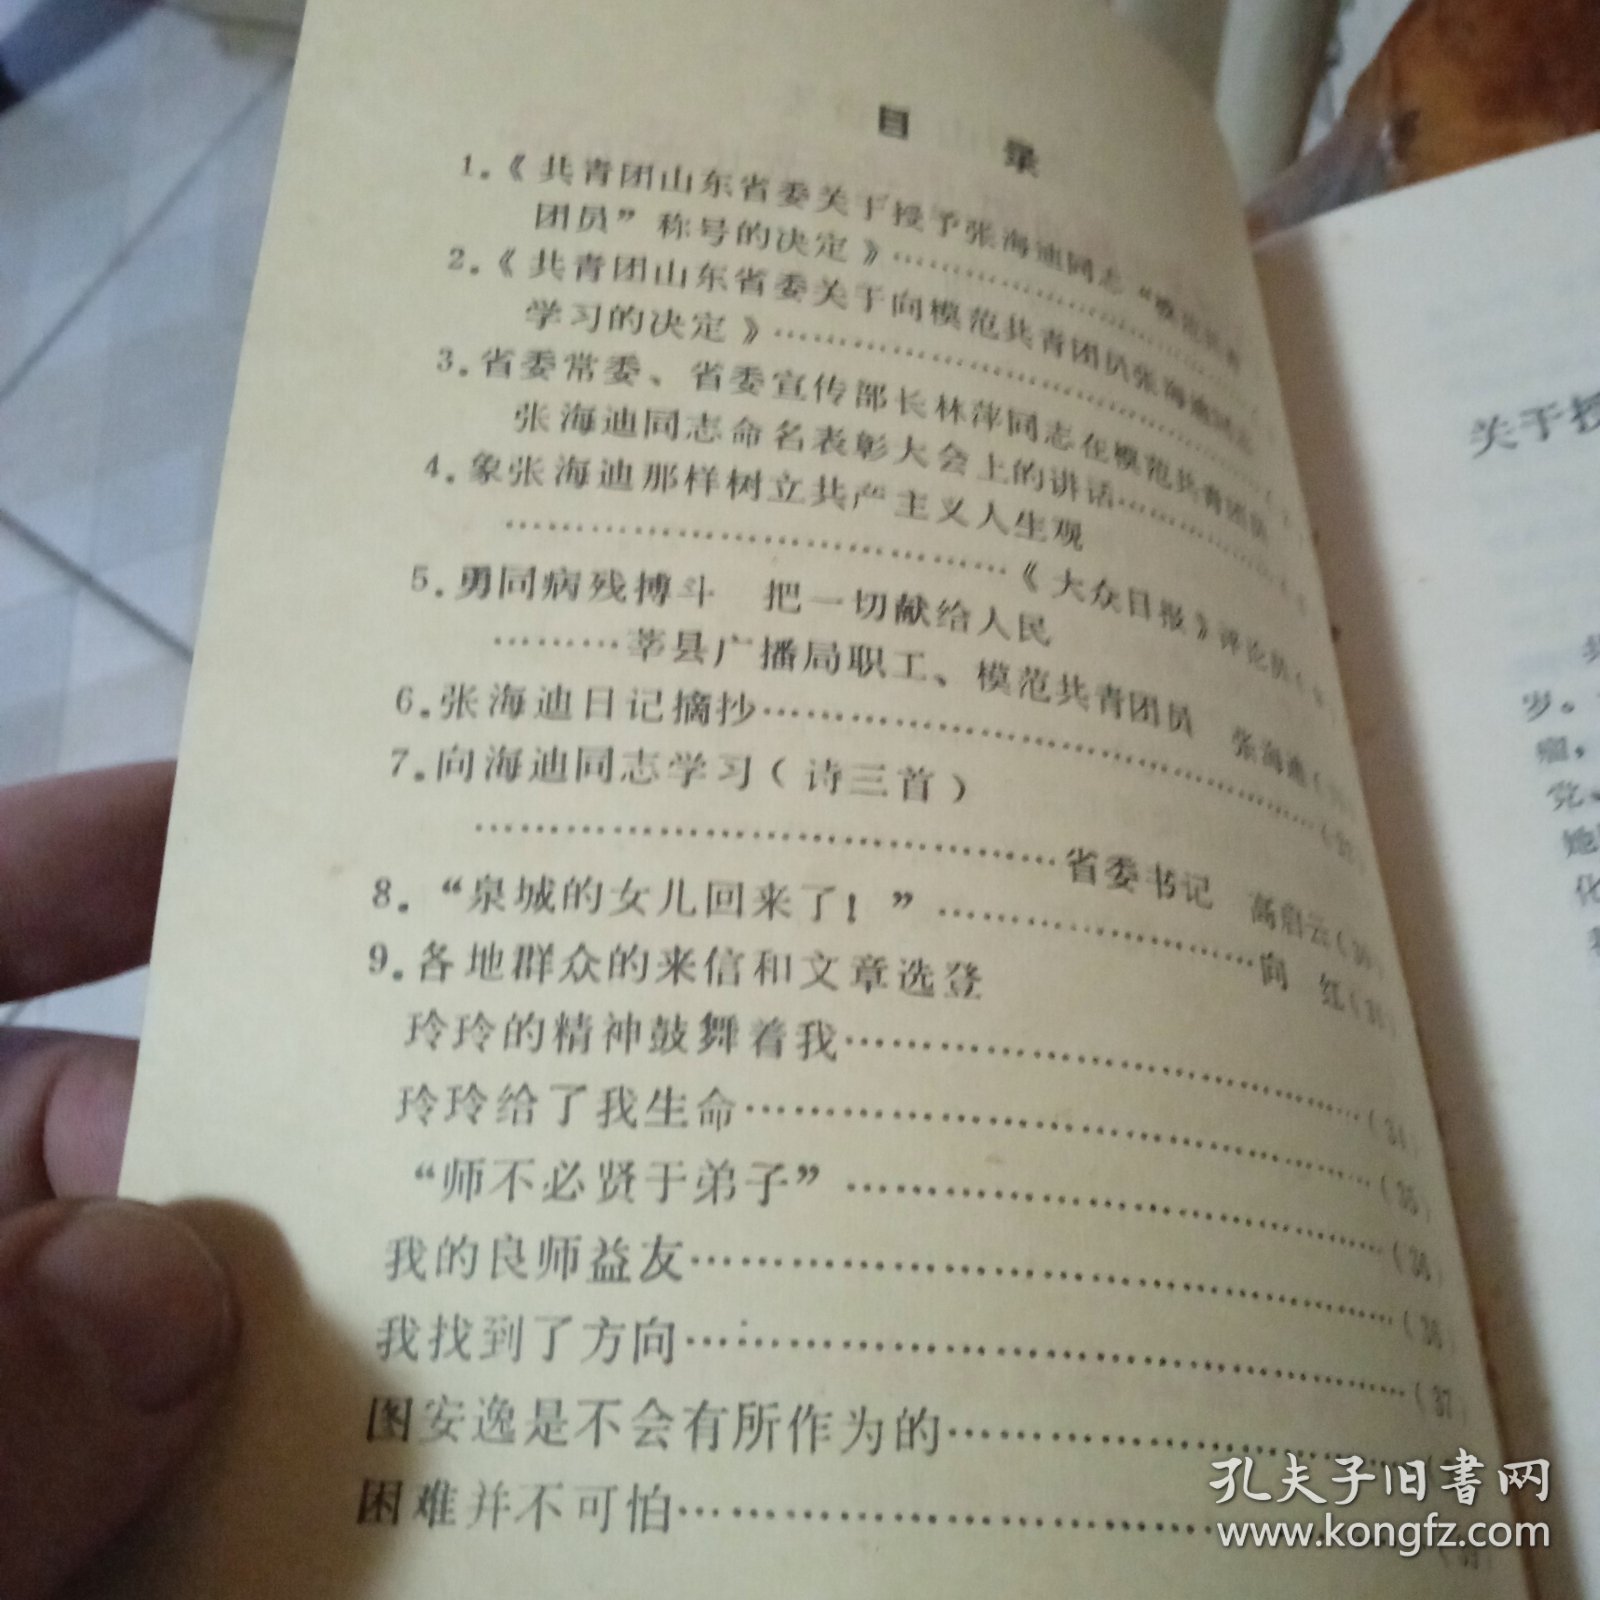 目 录
1.《共青团山东省委关于授予张海迪同志“模范共青
团员”称号的决定》
2.《共青团山东省委关于向模范共青团员张海迪同志
学习的决定》
3.省委常委、省委宣传部长林萍同志在模范共青团员
张海迪同志命名表彰大会上的讲话
4.象张海迪那样树立共产主义人生观
《大众日报》评论员
5.勇同病残搏斗 把一切献给人民
莘县广播局职工、模范共青团员 张海迪
6.张海迪日记摘抄
7.向海迪同志学习(诗三首)
省委书记 高启云
8.“泉城的女儿回来了!”向 红
9.各地群众的来信和文章选登
玲玲的精神鼓舞着我(34)
玲玲给了我生命(35)
“师不必贤于弟子”(36)
我的良师益友(36)
我找到了方向(37)
图安逸是不会有所作为的
困难并不可怕
关于授
岁。
瘤,
党、
她
化
孔夫子旧书网
www.kongfz.com